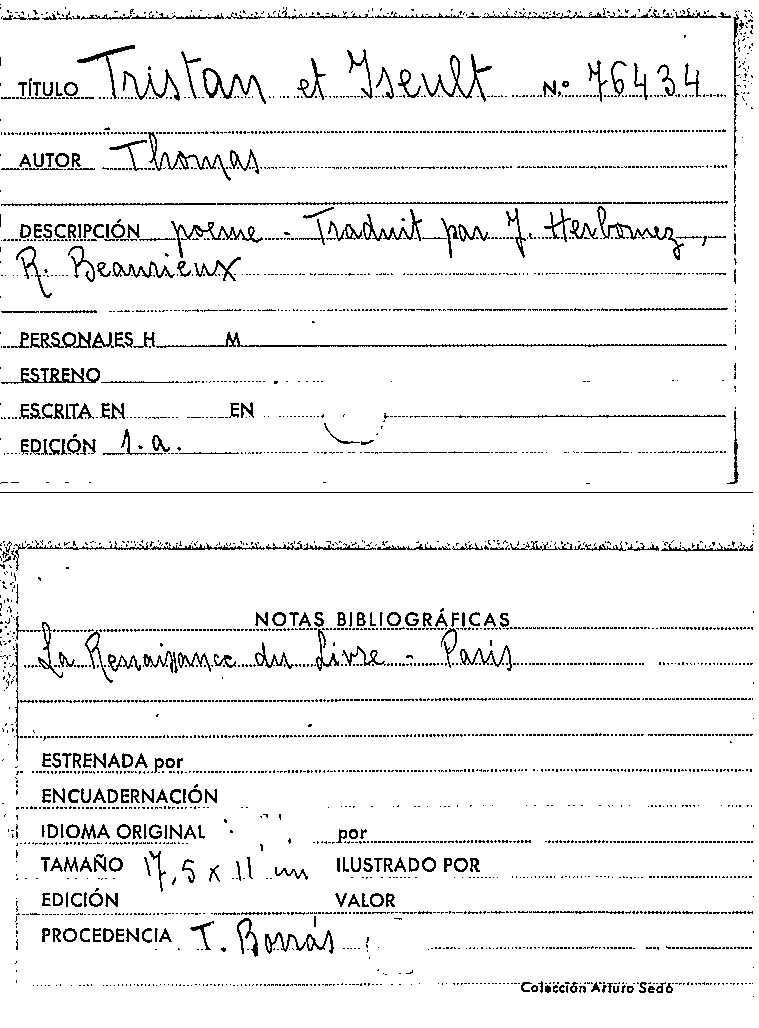 TÍTULO Tristan et Yseult N.º 76434
AUTOR Thomas
DESCRIPCIÓN poeme - Traduit par J. Herbomez,
R. Beaurieux
PERSONAJES H M
ESTRENO
ESCRITA EN EN
EDICIÓN 1.a.
NOTAS BIBLIOGRÁFICAS
La Renaissance du Livre - Paris
ESTRENADA por
ENCUADERNACIÓN
IDIOMA ORIGINAL por
TAMAÑO 17,5 x 11 cm ILUSTRADO POR
EDICIÓN VALOR
PROCEDENCIA T. Borrás
Colección Arturo Sedó